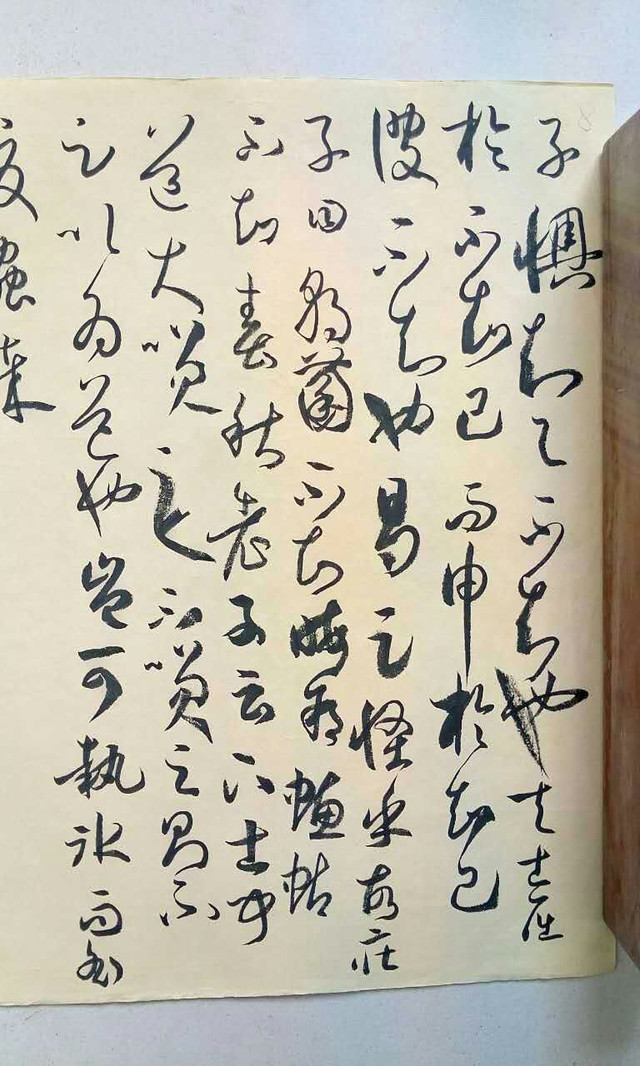 子懊知與不知也夫士屈
於不知己而申於知己
彼不知也曷足怪乎故莊
子曰朝菌不知晦朔蟪蛄
不知春秋老子云下士聞
道大咲之不咲之則不
足以為道也豈可執冰而咎
夏蟲哉